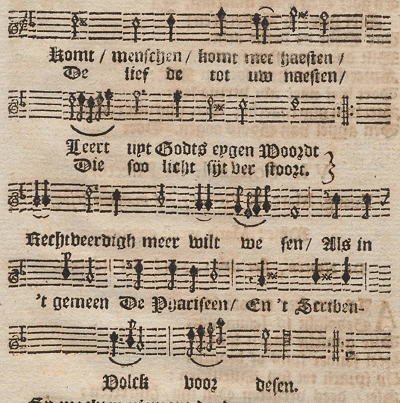 Komt / menschen / komt met haesten /
De lief de tot uw naesten /
Leert uyt Godts eygen Woordt
Die soo licht sijt ver stoort.
Rechtveerdigh meer wilt we sen / Als in
't gemeen De Phariseen / En 't Scriben-
Volck voor desen.